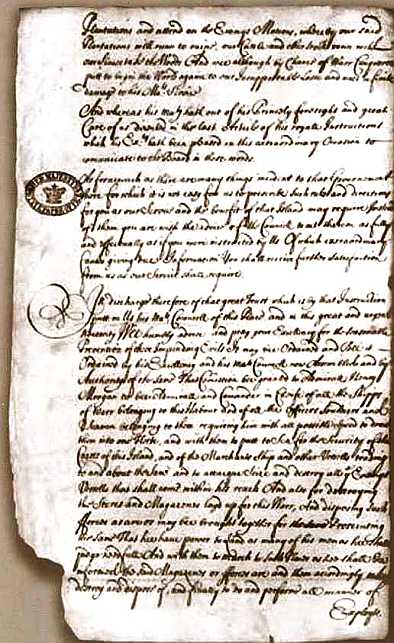 Plantations and attend on the Enemys Motions, whereby our said
Plantations will run to ruine, our Cattle and other Stock run wild
our Slaves to the Woods And wee although by Chance of Warr Conquerors
putt to begin the World againe to our Irreparable Loss and
damage to his Ma: Service
And whereas his Ma: hath out of his Princely foresight and great
Care of us directed in the last Article of his royall Instructions
which his Ex: hath been pleased on this extraordinary Occasion to
communicate to the Board in these words
As forasmuch as there are many things incident to that Government
there for which it is not easy for us to prescribe such rules and directions
for you as our Service and the benefit of that Island may require
of them you are with the advice of the Councell to act therein as fully
and effectually as if you were instructed by Us Of which extraordinary
Cases giving Due Information You shall receive further satisfaction
from us as our Service shall require.
In discharge therefore of that great Trust which is by that Instruction
putt in Us his Ma: Councell of this Place and in this great and urgent
necessity, Wee humbly advise and pray your Excellency for the seasonable
Prevention of these Impending Evills It may bee Ordained and Bee it
Ordained by his Excellency and his Ma: Councell now Assembled and by
Authority of the same That Comission bee granted to Admirall Henry
Morgan to bee Admirall and Comander in Cheife of all the Shipps
of Warr belonging to this Harbour and of all the Officers Souldiers and
Seamen belonging to them requiring him with all possible speed to draw
them into one Fleete, and with them to putt to Sea for the Security of the
Coast of this Island, and of the Merchants Ships and other Vessells trading
to and about the same and to attacque Seize and destroy all of Enemys
Vessells that shall come within his reach And also for destroying
the Stores and Magazenes layd up for this Warr, And dispersing such
fforces as are or may bee brought together for the
the same That hee have power to land as many of his men as hee shall
judge needfull And with them to march to such Places as hee shall bee
informed the said Magazenes or fforces are and them accordingly
destroy and disperse of and finally to do and performe all manner of
Exployts